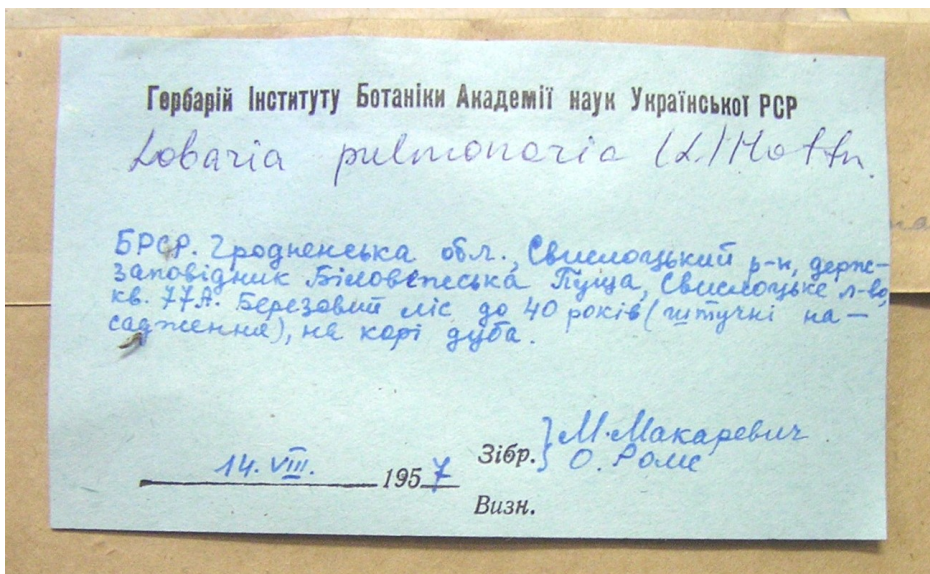 Гербарій Інституту Ботаніки Академії наук Української РСР
Lobaria pulmonaria (L.) Hoffm.
БРСР. Гродненська обл., Свислоцький р-н, держ-
заповідник Біловежська Пуща, Свислоцьке л-во,
кв. 77А. Березовий ліс до 40 років (штучні на-
садження), на корі дуба.
14. VIII. 1957
Зібр. } М. Макаревич
О. Ромс
Визн.